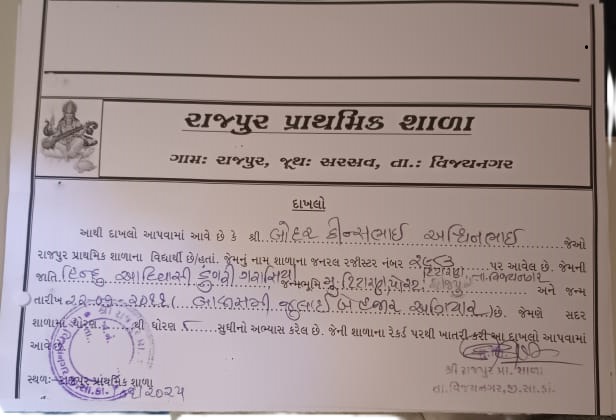 રાજપુર પ્રાથમિક શાળા
ગામઃ રાજપુર, જૂથઃ સરસવ, તા.: વિજયનગર
દાખલો
આથી દાખલો આપવામાં આવે છે કે શ્રી બોદર પ્રીન્સભાઈ અશ્વિનભાઈ જેઓ
રાજપુર પ્રાથમિક શાળાના વિદ્યાર્થી છે/હતાં. જેમનું નામ શાળાના જનરલ રજીસ્ટર નંબર પર આવેલ છે. જેમની
જાતિ હિન્દુ આદિવાસી ડુંગરી ગરાસિયા જન્મભૂમિ મુ. તા.વિજયનગર અને જન્મ
તારીખ ૨૨-૦૭-૨૦૧૧ બાવીસમી જુલાઈ બે હજાર અગિયાર છે. જેમણે સદર
શાળામાં ધોરણ થી ધોરણ ૮ સુધીનો અભ્યાસ કરેલ છે. જેની શાળાના રેકર્ડ પરથી ખાતરી કરી આ દાખલો આપવામાં
આવે છે.
શ્રી રાજપુર પ્રા. શાળા
સ્થળઃ- રાજપુર પ્રાથમિક શાળા
તા. વિજયનગર, જી.સા.કાં.